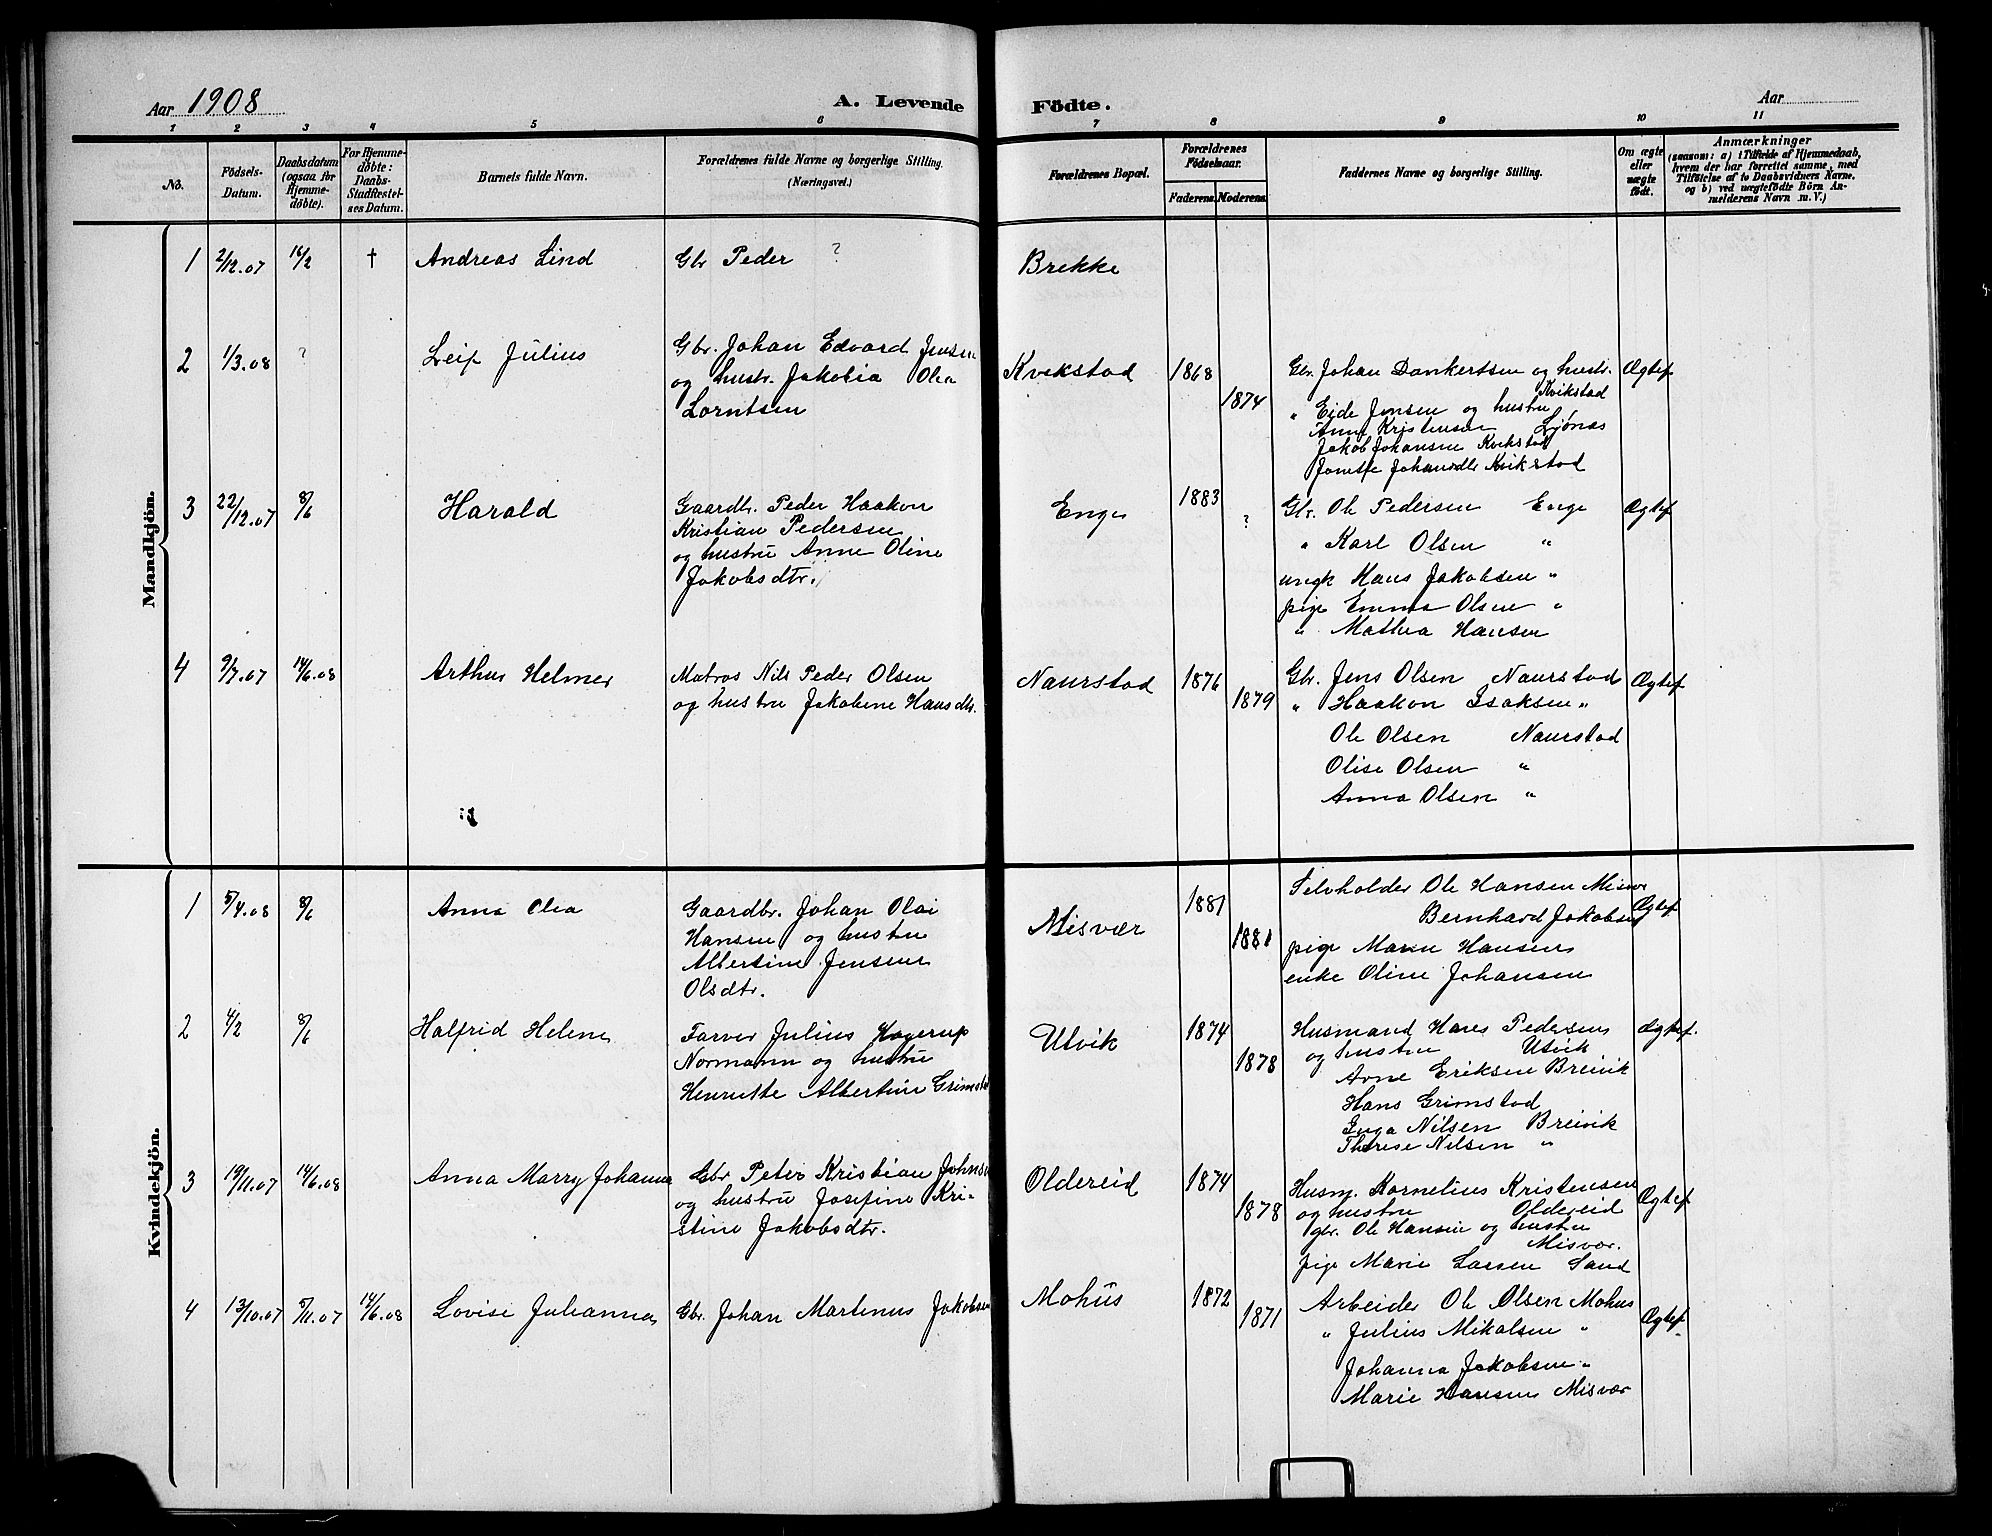 Aar 1908
A. Levende Födte.
Aar
1 2 3 4 5 6 7 8 9 10 11
No.
Födsels-Datum.
Daabsdatum (ogsaa for Hjemmedøbte).
For Hjemmedøbte: Daabs-Stadfæstelses Datum.
Barnets fulde Navn.
Forældrenes fulde Navne og borgerlige Stilling.
(Næringsvei.)
Forældrenes Bopæl.
Forældrenes Födselsaar.
Faderens. Moderens.
Faddernes Navne og borgerlige Stilling.
Om ægte eller uægte födt.
Anmærkninger
(saasom: a) i Tilfælde af Hjemmedaab,
hvem der har forrettet samme, med
Tilföielse af to Daabsvidners Navne,
og b) ved uægtefödte Börn An-
melderens Navn m. V.)
Mandkjön.
1 2/12.07 16/2 † Andreas Lind Gbr Peder ? Brekke
2 1/3.08 ? Leif Julius
Gbr. Johan Edvard Jensen
og hustr. Jakobia Olea
Lorntsen
Kvikstad 1868 1874
Gbr. Johan Dankertsen og hustr.
Kvikstad
" Eide Jensen og hustru
Anne Kristensen Ljönes
Jakob Johansen Kvikstad
Jomfr Johansdtr Kvikstad
Ægtef
3 22/12.07 8/6 Harald
Gaardbr. Peder Haakon
Kristian Pedersen
og hustru Anne Oline
Jakobsdtr.
Enge 1883 ?
Gbr. Ole Pedersen Enge
" Karl Olsen "
ungk Hans Jakobsen "
pige Emma Olsen "
" Mathea Hansen
Ægtef
4 9/7.07 14/6.08 Arthur Helmer
Matros Nils Peder Olsen
og hustru Jakobine Hansdtr.
Naurstad 1876 1879
Gbr. Jens Olsen Naurstad
" Haakon Isaksen "
Ole Olsen Naurstad
Olise Olsen "
Anna Olsen "
Ægtef
Kvindekjön.
1 5/4.08 8/6 Anna Olea
Gaardbr. Johan Olai
Hansen og hustru
Albertine Jensine
Olsdtr.
Misvær 1881 1881
Selvholder Ole Hansen Misvær
Bernhard Jakobsen
pige Maren Hansen
enke Oline Johansen
Ægtef
2 4/2 8/6 Halfrid Helene
Farver Julius Hagerup
Normann og hustru
Henriette Albertine Grimstad
Utvik 1874 1878
Husmand Hans Pedersen
og hustru Utvik
Arne Eriksen Breivik
Hans Grimstad
Inga Nilsen Breivik
Therese Nilsen "
Ægtef.
3 19/11.07 14/6.08 Anna Marry Johanna
Gbr Peter Kristian Johnsen
og hustru Josefine Kri-
stine Jakobsdtr.
Oldereid 1874 1878
Husm. Kornelius Kristensen
og hustru Oldereid
gbr. Ole Hansen og hustru
Misvær.
pige Marie Larsen Sand
Ægtef
4 13/10.07 5/11.07 14/6.08 Lovise Julianna
Gbr. Johan Martinus Jakobsen
Mohus 1872 1871
Arbeider Ole Olsen Mohus
" Julius Mikalsen "
Johanna Jakobsen "
Marie Hansen Misvær
Ægtef.